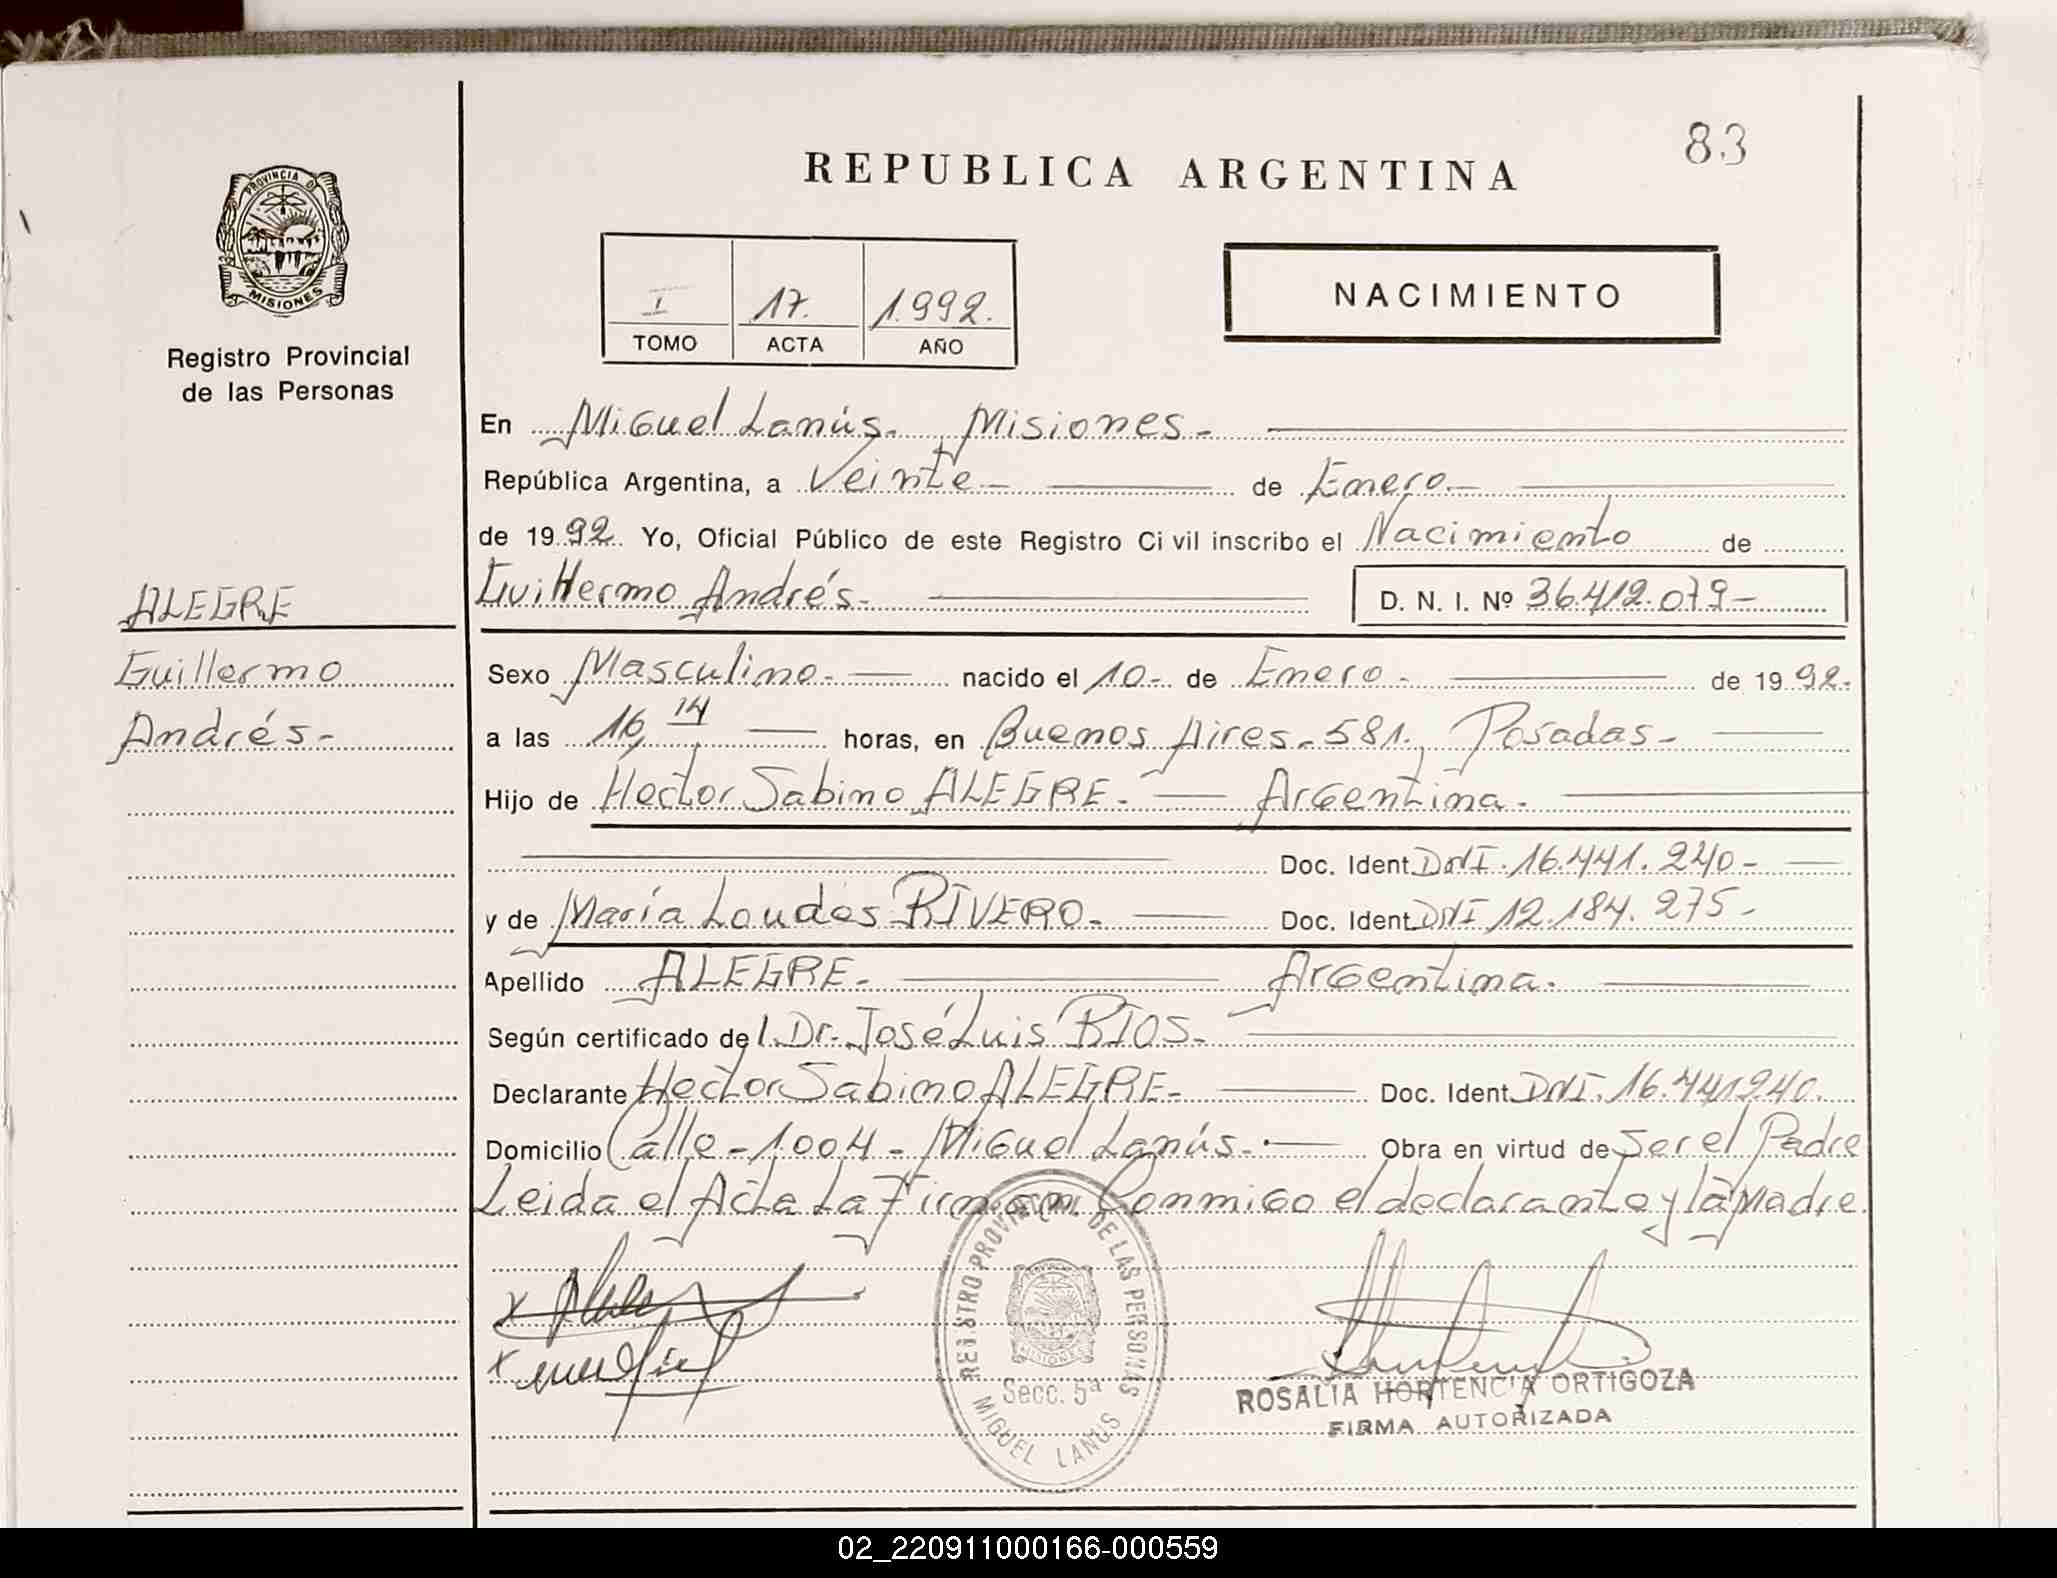 83
REPUBLICA ARGENTINA
PROVINCIA DE
MISIONES
Registro Provincial
de las Personas
I 17. 1.992.
TOMO ACTA AÑO
NACIMIENTO
En Miguel Lanús. Misiones-
República Argentina, a Veinte- de Enero-
de 1992. Yo, Oficial Público de este Registro Civil inscribo el Nacimiento de
Guillermo Andrés- D. N. I. Nº 36.412.079-
ALEGRE
Guillermo
Andrés-
Sexo Masculino- nacido el 10- de Enero- de 1992.
a las 16,14 horas, en Buenos Aires-581, Posadas-
Hijo de Hector Sabino ALEGRE- Argentina-
Doc. Ident. DNI. 16.441.240-
y de María Loudes RIVERO- Doc. Ident. DNI 12.184.275-
Apellido ALEGRE- Argentina.
Según certificado de l. Dr. José Luis RIOS-
Declarante Hector Sabino ALEGRE- Doc. Ident. DNI. 16.441240.
Domicilio Calle-1.004- Miguel Lanús- Obra en virtud de Ser el Padre
Leida el Acta La Firman Conmigo el declarante y la Madre.
REGISTRO PROVINCIAL DE LAS PERSONAS
MISIONES
Secc. 5ª
MIGUEL LANUS
ROSALIA HORTENCIA ORTIGOZA
FIRMA AUTORIZADA
02_220911000166-000559